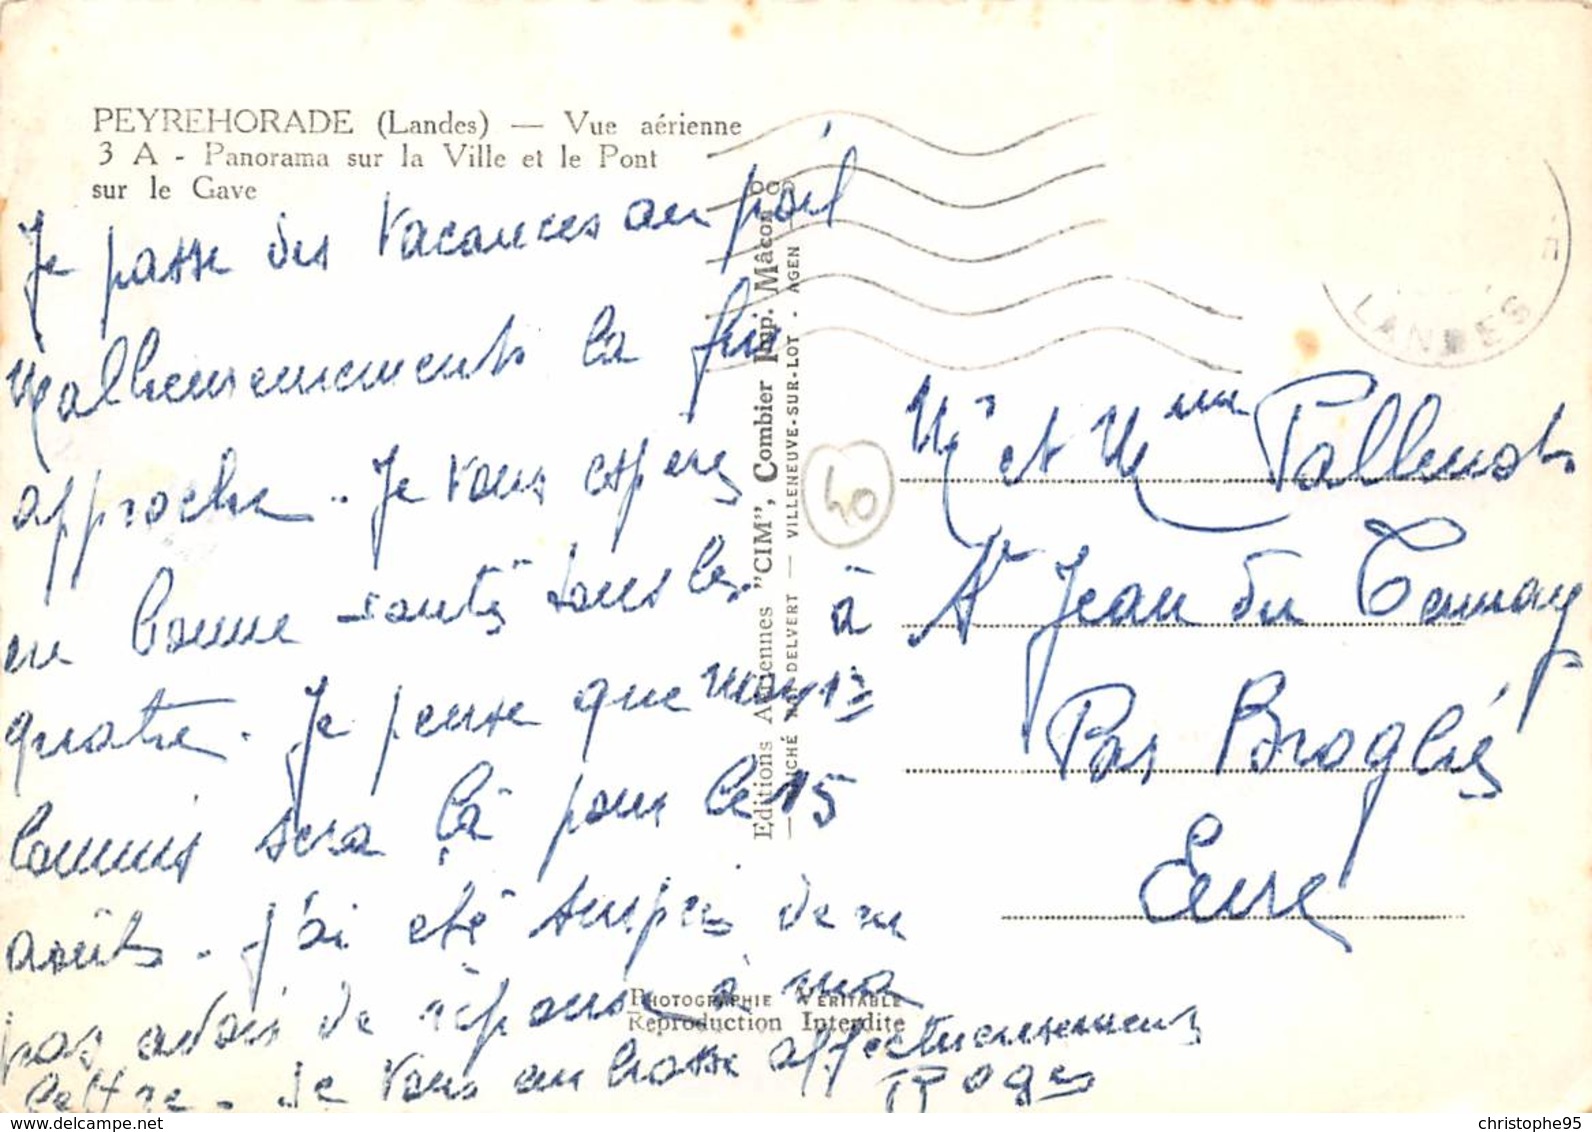 PEYREHORADE (Landes) — Vue aérienne
3 A - Panorama sur la Ville et le Pont
sur le Gave
Je passe des vacances au poil
Malheureusements la fin
approche. Je vous espère
en bonne santé tous les
quatre. Je pense que
sera là pour le 15
août. J'ai été surpris de
pas avoir de réponse à ma
lettre. Je vous embrasse affectueusement
Roger
Editions Aériennes "CIM", Combier Imp. Mâcon
— VILLENEUVE-SUR-LOT - AGEN —
PHOTOGRAPHIE VÉRITABLE
Reproduction Interdite
LANDES
40
Mr et Mme Pallenot
à St Jean du
Par Broglie
Eure
christophe95